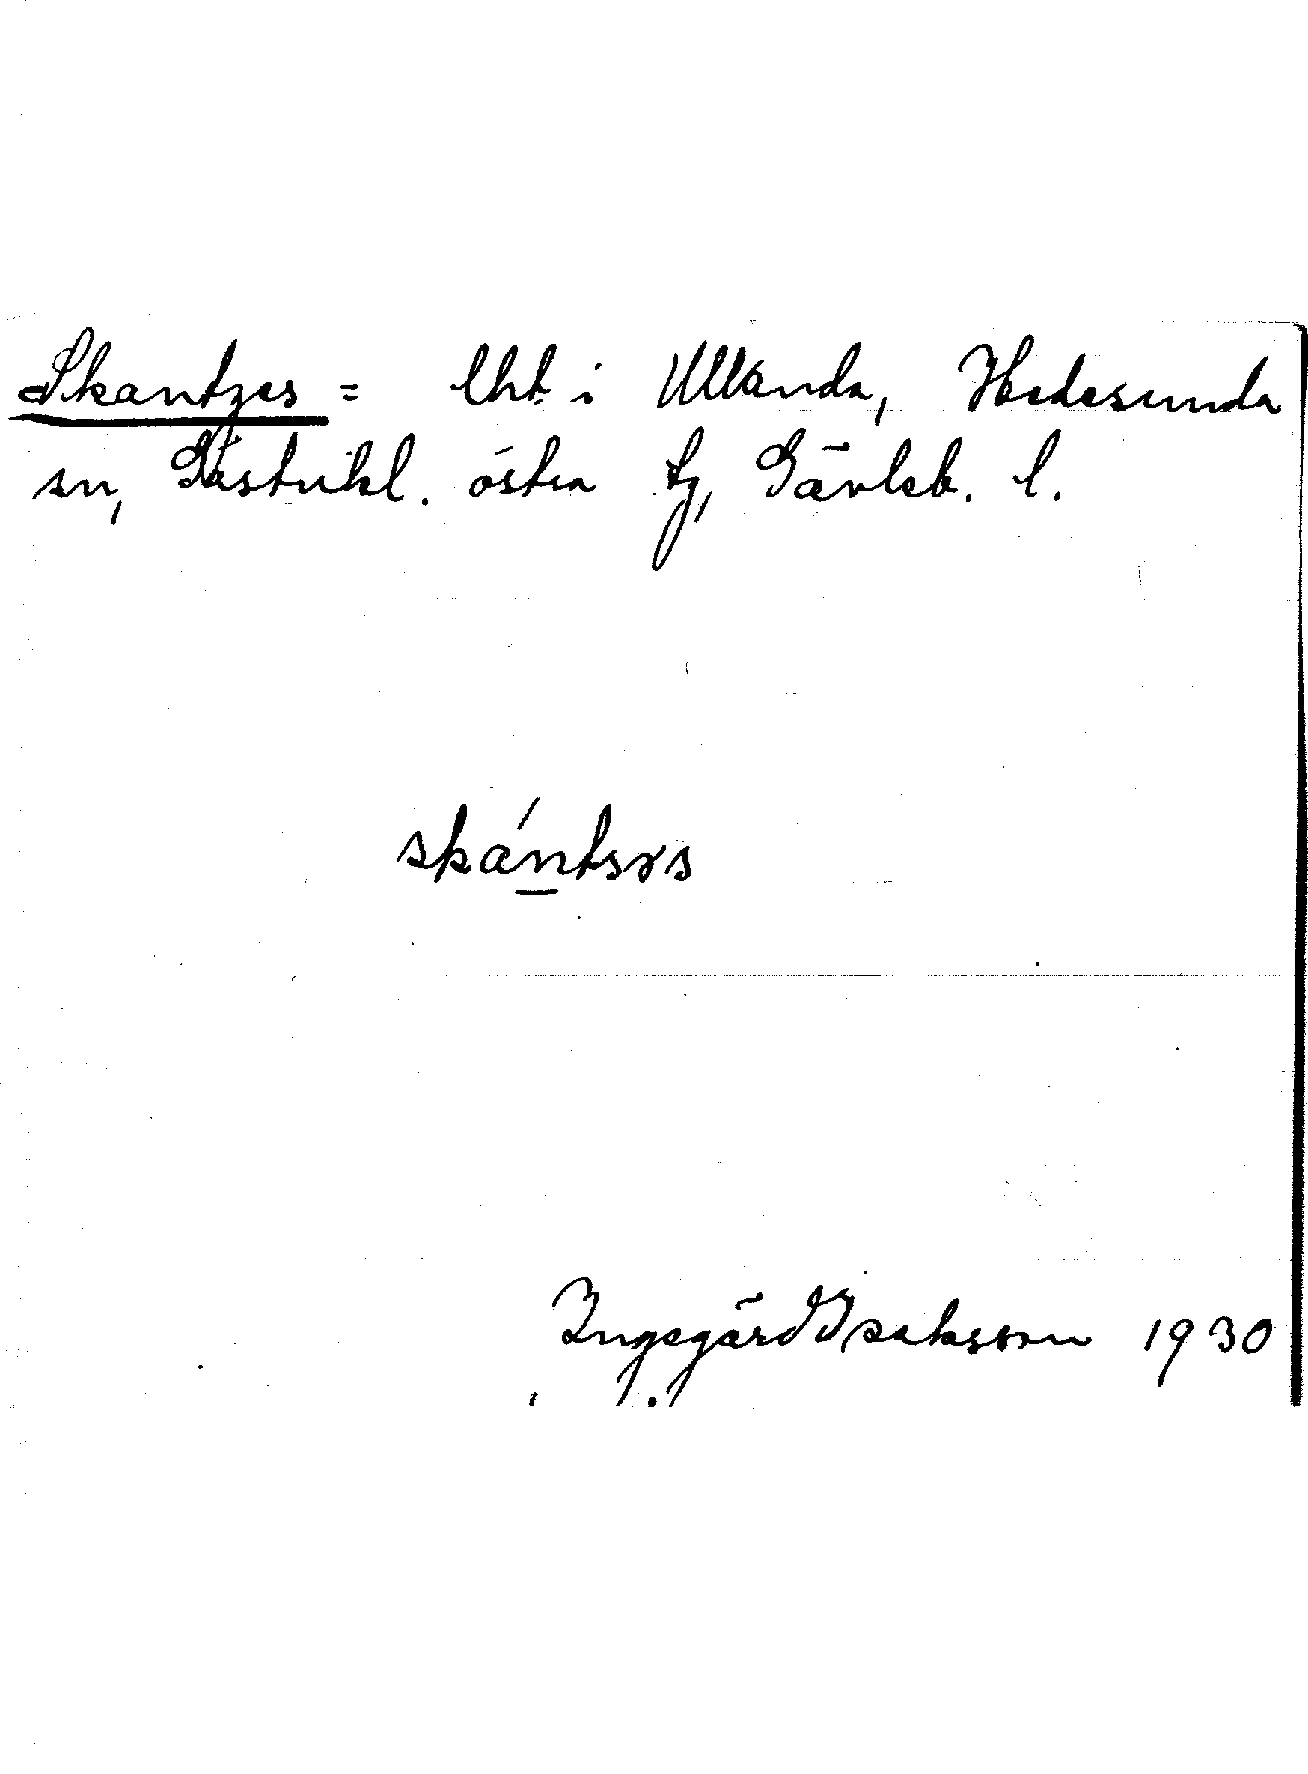 Skantzes = lht i Ullanda, Hedesunda
sn, Gästrikl. östra tg, Gävleb. l.
skántsɤs
Ingegärd Isaksson 1930